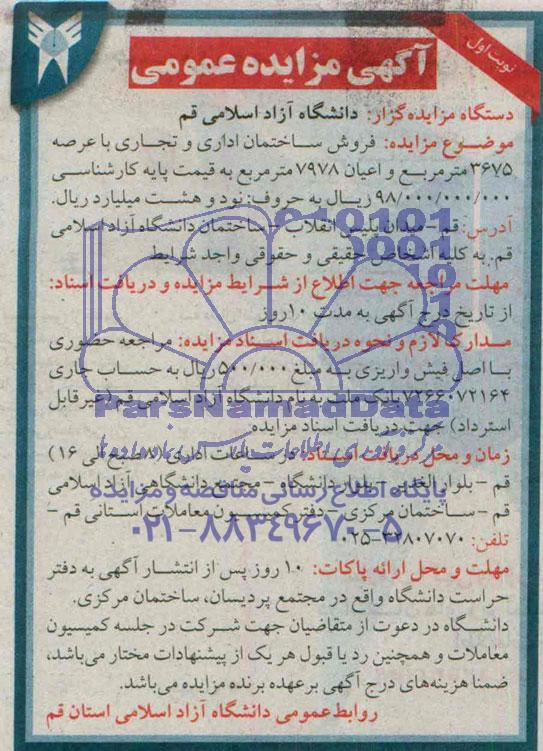 نوبت اول
آگهی مزایده عمومی
دستگاه مزایده‌گزار: دانشگاه آزاد اسلامی قم
موضوع مزایده: فروش ساختمان اداری و تجاری با عرصه
۳۶۷۵ مترمربع و اعیان ۷۹۷۸ مترمربع به قیمت پایه کارشناسی
۹۸/۰۰۰/۰۰۰/۰۰۰ ریال به حروف: نود و هشت میلیارد ریال.
آدرس: قم - میدان پلیس انقلاب - ساختمان دانشگاه آزاد اسلامی
قم. به کلیه اشخاص حقیقی و حقوقی واجد شرایط
مهلت مراجعه جهت اطلاع از شرایط مزایده و دریافت اسناد:
از تاریخ درج آگهی به مدت ۱۰ روز
مدارک لازم و نحوه دریافت اسناد مزایده: مراجعه حضوری
با اصل فیش واریزی به مبلغ ۵۰۰/۰۰۰ ریال به حساب جاری
بانک ملت به نام دانشگاه آزاد اسلامی قم (غیر قابل
ParsNamadData
استرداد) جهت دریافت اسناد مزایده.
مرکز فرآوری اطلاعات پارس نماد داده ها
زمان و محل دریافت اسناد: در ساعات اداری (۸ صبح الی ۱۶)
قم - بلوار الغدیر - بلوار دانشگاه - مجتمع دانشگاهی آزاد اسلامی
پایگاه اطلاع رسانی مناقصه و مزایده
قم - ساختمان مرکزی - دفتر کمیسیون معاملات استانی قم -
۰۲۱-۸۸۳۴۹۶۷۰-۵
تلفن: ۳۲۸۰۷۰۷۰-۰۲۵
مهلت و محل ارائه پاکات: ۱۰ روز پس از انتشار آگهی به دفتر
حراست دانشگاه واقع در مجتمع پردیسان، ساختمان مرکزی.
دانشگاه در دعوت از متقاضیان جهت شرکت در جلسه کمیسیون
معاملات و همچنین رد یا قبول هر یک از پیشنهادات مختار می‌باشد،
ضمنا هزینه‌های درج آگهی بر عهده برنده مزایده می‌باشد.
روابط عمومی دانشگاه آزاد اسلامی استان قم